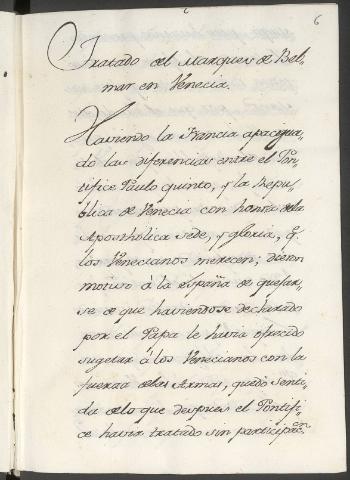 6
Tratado del Marques de Bel-
mar en Venecia.
Haviendo la Francia apacigua-
do las diferencias entre el Pon-
tifice Paulo quinto, y la Repu-
blica de Venecia con honra de la
Apostholica sede, y gloria, q.
los Venecianos merecen; dieron
motivo à la españa de quejar-
se de que haviendose declarado
por el Papa le havia ofrecido
sugetar à los Venecianos con la
fuerza de las Armas, quedò senti-
da de lo que despues el Pontifi-
ce havia tratado sin participac.on